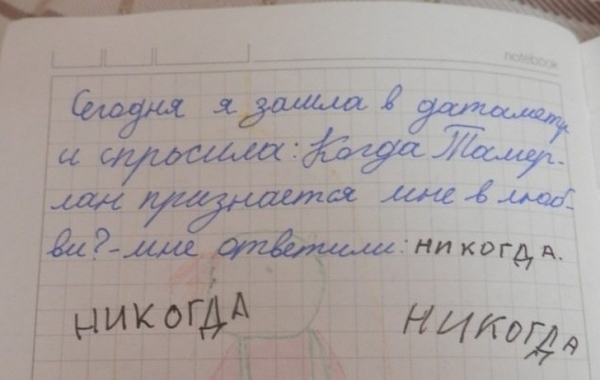 notebook
Сегодня я зашла в датаметр
и спросила: Когда Тамер-
лан признается мне в люб-
ви? - мне ответили: никогда.
НИКОГДА НИКОГДА